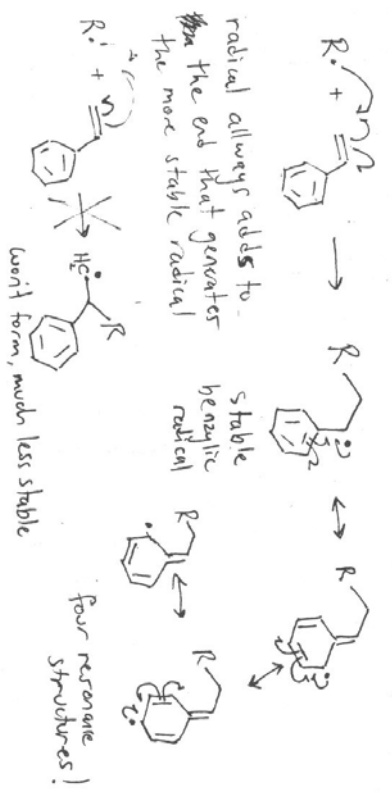 R· +
R
R
stable
benzylic
radical
R
R
four resonance
structures!
radical allways adds to
the end that generates
the more stable radical
R· +
H₂C·
R
won't form, much less stable